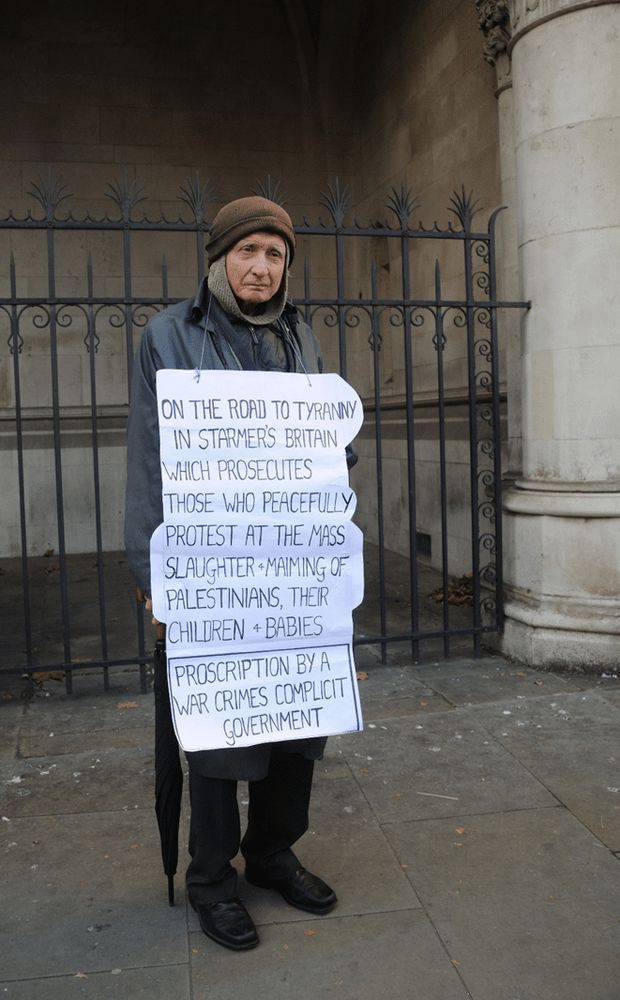 ON THE ROAD TO TYRANNY
IN STARMER'S BRITAIN
WHICH PROSECUTES
THOSE WHO PEACEFULLY
PROTEST AT THE MASS
SLAUGHTER + MAIMING OF
PALESTINIANS, THEIR
CHILDREN + BABIES
PROSCRIPTION BY A
WAR CRIMES COMPLICIT
GOVERNMENT